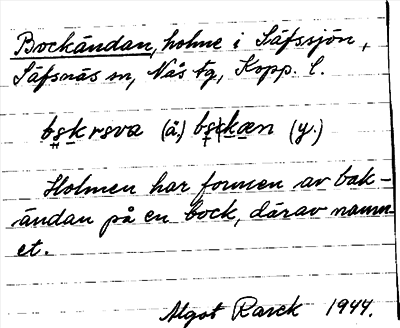 Bockändan, holme i Säfssjön,
Säfsnäs sn, Nås tg, Kopp. l.
(å.) (y.)
Holmen har formen av bak-
ändan på en bock, därav namn-
et.
Algot Rarck 1944.